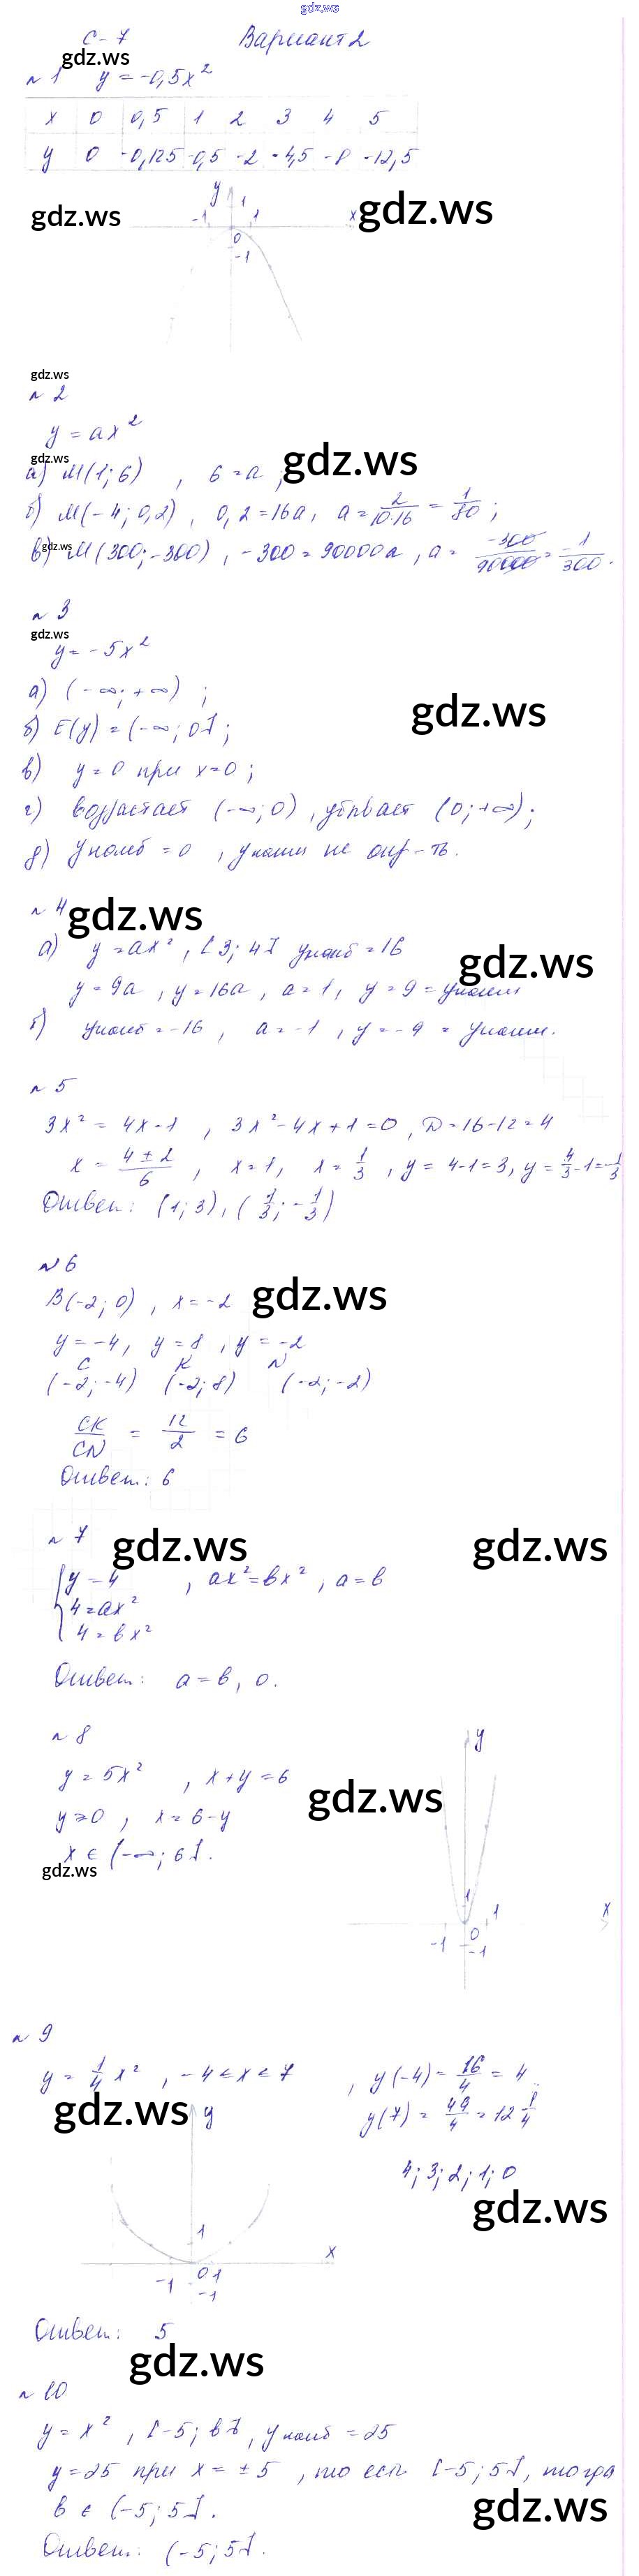 gdz.ws
С-7 Вариант 2
gdz.ws
№1 y = -0,5x²
x 0 0,5 1 2 3 4 5
y 0 -0,125 -0,5 -2 -4,5 -8 -12,5
y
1
gdz.ws -1 1 x gdz.ws
0
-1
gdz.ws
№2
y = ax²
gdz.ws
а) M(1; 6) , 6 = a ; gdz.ws
б) M(-4; 0,2) , 0,2 = 16a, a = 2/10·16 = 1/80 ;
gdz.ws
в) M(300; -300) , -300 = 90000a , a = -300/90000 = -1/300 .
№3
gdz.ws
y = -5x²
а) (-∞; +∞) ;
gdz.ws
б) E(y) = (-∞; 0] ;
в) y = 0 при x = 0 ;
г) возрастает (-∞; 0) , убывает (0; +∞) ;
д) y наиб = 0 , y наим не опр-ть.
№4 gdz.ws
а) y = ax² , [3; 4] y наиб = 16
gdz.ws
y = 9a , y = 16a , a = 1 , y = 9 = y наим
б) y наиб = -16 , a = -1 , y = -9 = y наим.
№5
3x² = 4x - 1 , 3x² - 4x + 1 = 0 , D = 16 - 12 = 4
x = 4 ± 2/6 , x = 1 , x = 1/3 , y = 4 - 1 = 3, y = 4/3 - 1 = 1/3
Ответ: (1; 3) , (1/3; -1/3)
№6
B(-2; 0) , x = -2 gdz.ws
y = -4 , y = 8 , y = -2
C K N
(-2; -4) (-2; 8) (-2; -2)
CK/CN = 12/2 = 6
Ответ: 6
№7 gdz.ws gdz.ws
{ y = 4 , ax² = bx² , a = b
4 = ax²
4 = bx²
Ответ: a = b, 0.
№8 y
y = 5x² , x + y = 6
gdz.ws
y ≥ 0 , x = 6 - y
x ∈ (-∞; 6] .
gdz.ws
1 1 x
-1 0
-1
№9
y = 1/4 x² , -4 < x < 7 , y(-4) = 16/4 = 4
gdz.ws y y(7) = 49/4 = 12 1/4
4; 3; 2; 1; 0
gdz.ws
1 x
-1 0 1
-1
Ответ: 5
gdz.ws
№10
y = x² , [-5; b] , y наиб = 25
y = 25 при x = ±5 , то есть [-5; 5] , тогда
b ∈ (-5; 5] . gdz.ws
Ответ: (-5; 5] .